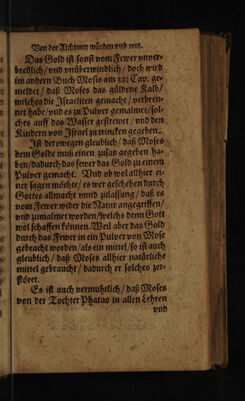 Von der Alchimey würden vnd nutz.
Das Gold ist sonst vom Fewer vnver-
brenlich/ vnd vnüberwindlich/ doch wird
im andern Buch Moses am 32. Cap. ge-
meldet/ daß Moses das güldene Kalb/
welches die Israeliten gemacht/ verbren-
net habe/ vnd es zu Pulver gemalmet/sol-
ches auff das Wasser gestrewet / vnd den
Kindern von Israel zu trincken gegeben.
Ist derowegen gleublich/ daß Moses
dem Golde muß einen zusatz gegeben ha-
ben/dadurch das fewer das Gold zu einem
Pulver gemacht. Vnd ob wol allhier ei-
ner sagen möchte/ es wer geschehen durch
Gottes allmacht vnnd zulassung/ daß es
vom Fewer wider die Natur angegriffen/
vnd zumalmet worden/welchs denn Gott
wol schaffen können. Weil aber das Gold
durch das Fewer in ein Pulver von Mose
gebracht worden/als ein mittel/ so ist auch
gleublich/ daß Moses allhier natürliche
mittel gebraucht/ dadurch er solches zer-
störet.
Es ist auch vermuhtlich/ daß Moses
von der Tochter Pharao in allen Lehren
vnd